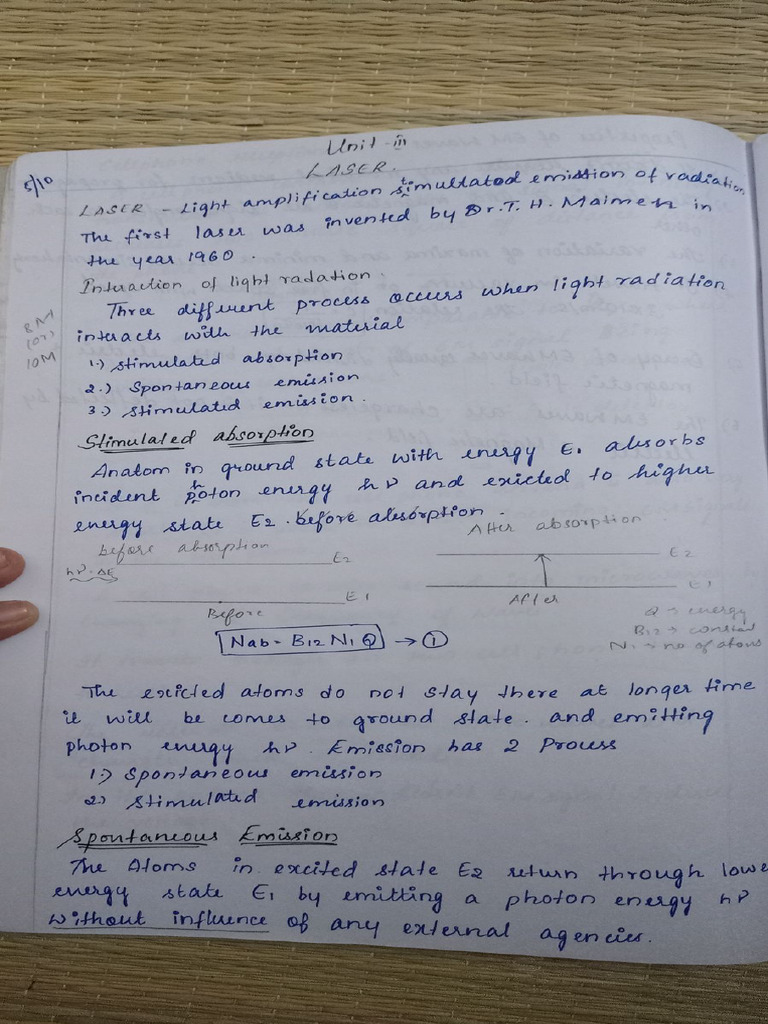 Unit - iii
LASER.
5/10
LASER - Light amplification stimultated emission of radiation
The first laser was invented by Dr. T. H. Maimen in
the year 1960.
Interaction of light radation.
Three different process occurs when light radiation
interacts with the material
8M
(or)
10M
1.) stimulated absorption
2.) Spontaneous emission
3.) Stimulated emission.
Stimulated absorption
An atom in ground state with energy E1 absorbs
incident photon energy hν and exicted to higher
energy state E2. before absorption.
before absorption
After absorption
hν = ΔE
E2
E2
E1
E1
Before
After
Nab = B12 N1 Q → ①
Q → energy
B12 → constant
N1 → no of atoms
The exicted atoms do not stay there at longer time
it will be comes to ground state. and emitting
photon energy hν. Emission has 2 Process
1.) Spontaneous emission
2.) Stimulated emission
Spontaneous Emission
The Atoms in excited state E2 return through lowe
energy state E1 by emitting a photon energy hν
without influence of any external agencies.